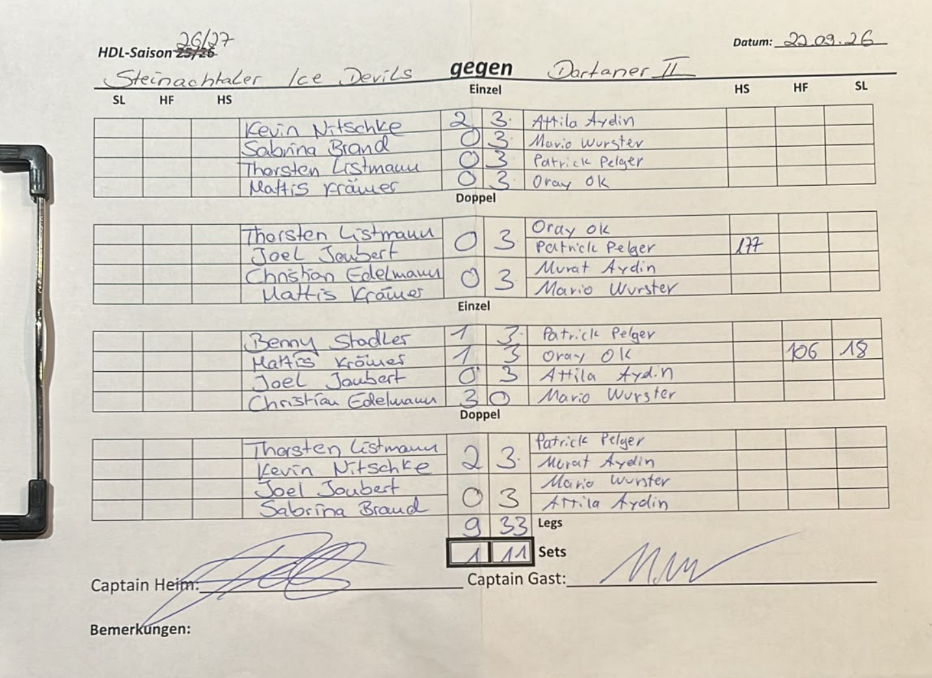 26/27
HDL-Saison 25/26 Datum: 22.09.26
Steinachtaler Ice Devils gegen Dartaner II
Einzel
SL HF HS HS HF SL
Kevin Nitschke 2 3 Attila Aydin
Sabrina Brand 0 3 Mario Wurster
Thorsten Listmann 0 3 Patrick Pelger
Mattis Krämer 0 3 Oray Ok
Doppel
Thorsten Listmann Oray Ok
0 3
Joel Joubert Patrick Pelger 177
Christian Edelmann Murat Aydin
0 3
Mattis Krämer Mario Wurster
Einzel
Benny Stadler 1 3 Patrick Pelger
Mattis Krämer 1 3 Oray Ok 106 18
Joel Joubert 0 3 Attila Aydin
Christian Edelmann 3 0 Mario Wurster
Doppel
Thorsten Listmann Patrick Pelger
2 3
Kevin Nitschke Murat Aydin
Joel Joubert Mario Wurster
0 3
Sabrina Brand Attila Aydin
9 33 Legs
1 11 Sets
Captain Heim: Captain Gast:
Bemerkungen: